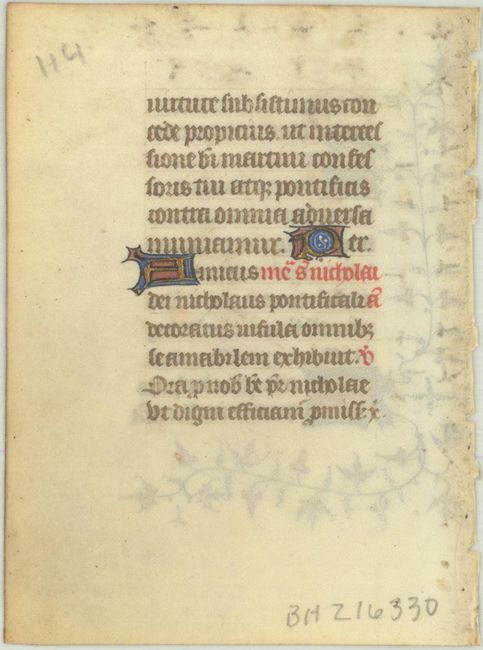 114
uirtute subsistimus con
cede propicius. ut interces
sione bi martini confes
soris tui atqꝫ pontificis
contra omnia aduersa
muniamur. Per.
Amicus mē s nicholai a
dei nicholaus pontificali
decoratus infula omnibꝫ
se amabilem exhibuit. v̊
Ora ꝓ nob bē pr nicholae
Vt digni efficiam ꝓmiss. x̄
BH 216330